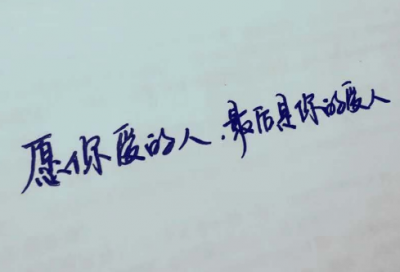 愿你爱的人，最后是你的爱人